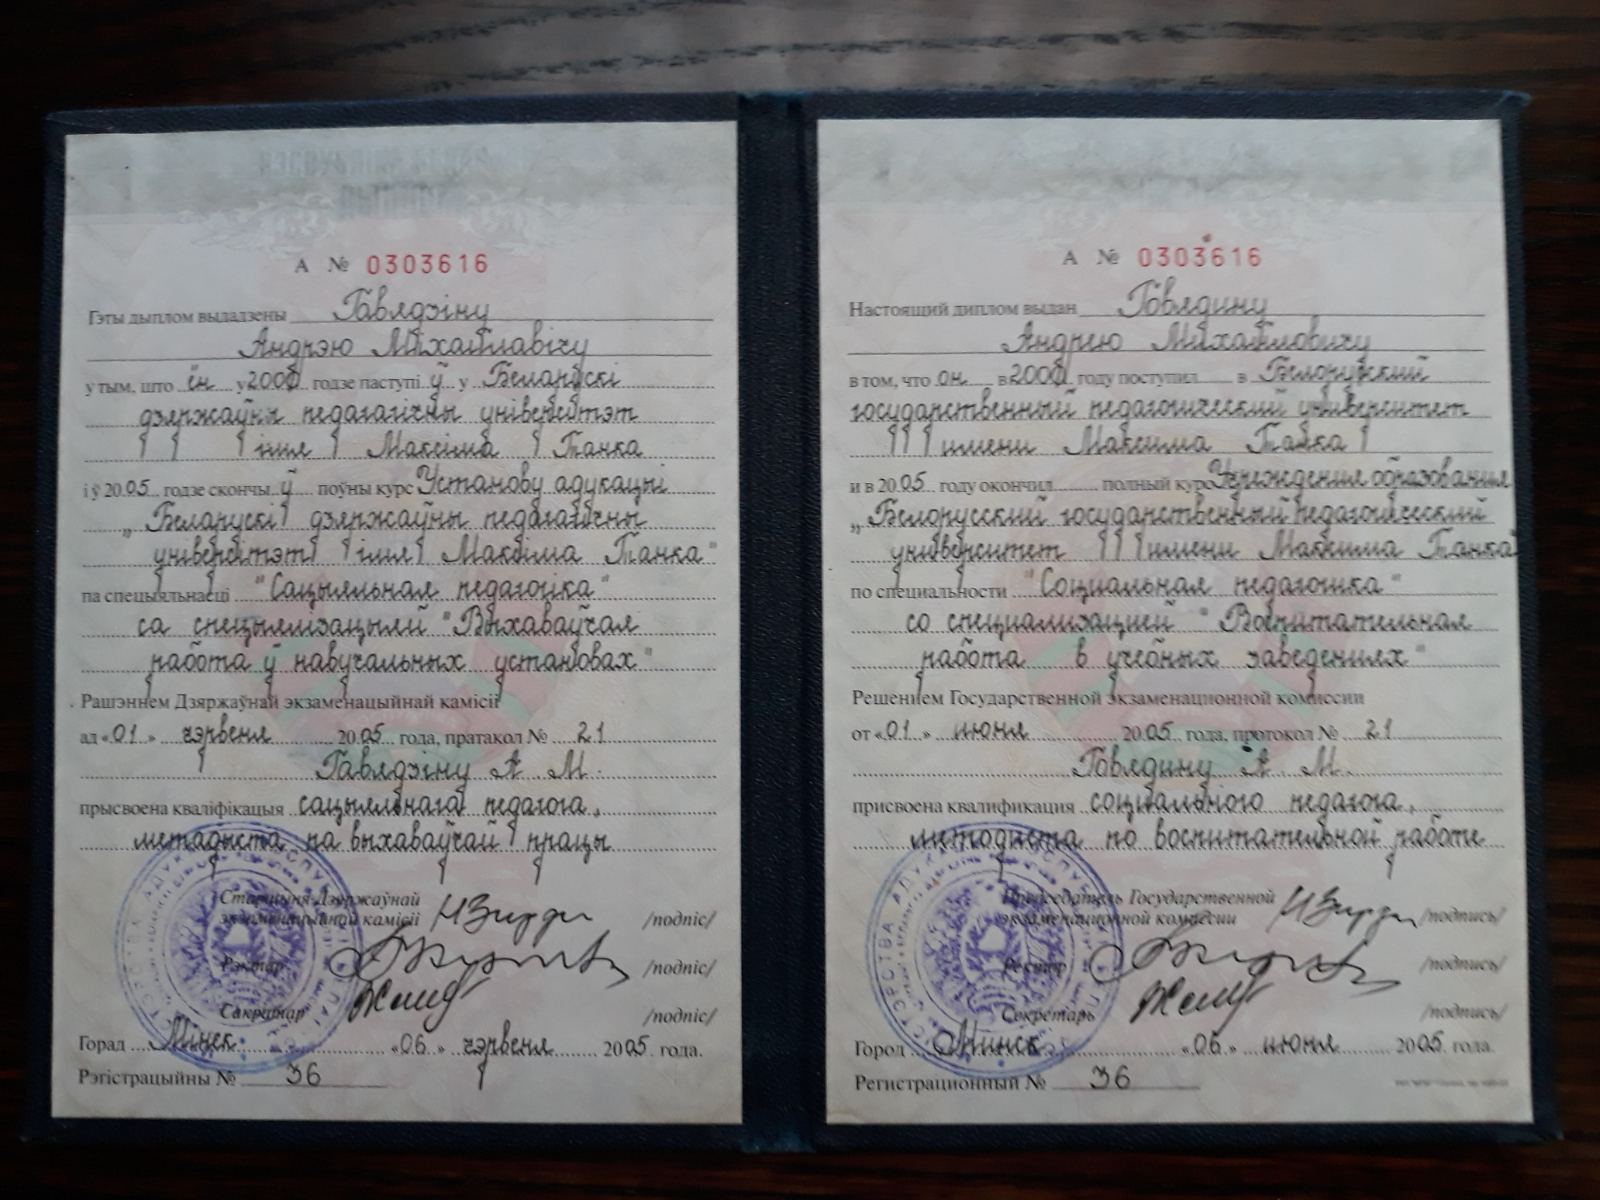 А № 0303616
Гэты дыплом выдадзены Гавядзіну
Андрэю Міхайлавічу
у тым, што ён у 2000 годзе паступі ў у Беларускі
дзяржаўны педагагічны універсітэт
імя Максіма Танка
і ў 2005 годзе скончы ў поўны курс Установу адукацыі
„Беларускі дзяржаўны педагагічны
універсітэт імя Максіма Танка"
па спецыяльнасці "Сацыяльная педагогіка"
са спецыялізацыяй "Выхаваўчая
работа ў навучальных установах"
Рашэннем Дзяржаўнай экзаменацыйнай камісіі
ад «01» чэрвеня 2005 года, пратакол № 21
Гавядзіну А. М.
прысвоена кваліфікацыя сацыяльнага педагога,
метадыста па выхаваўчай працы
Старшыня Дзяржаўнай
экзаменацыйнай камісіі /подпіс/
Рэктар /подпіс/
Сакратар /подпіс/
Горад Мінск «06» чэрвеня 2005 года.
Рэгістрацыйны № 36
А № 0303616
Настоящий диплом выдан Говядину
Андрею Михайловичу
в том, что он в 2000 году поступил в Белорусский
государственный педагогический университет
имени Максима Танка
и в 2005 году окончил полный курс Учреждения образования
„Белорусский государственный педагогический
университет имени Максима Танка"
по специальности "Социальная педагогика"
со специализацией "Воспитательная
работа в учебных заведениях"
Решением Государственной экзаменационной комиссии
от «01» июня 2005 года, протокол № 21
Говядину А. М.
присвоена квалификация социального педагога,
методиста по воспитательной работе
Председатель Государственной
экзаменационной комиссии /подпись/
Ректор /подпись/
Секретарь /подпись/
Город Минск «06» июня 2005 года.
Регистрационный № 36